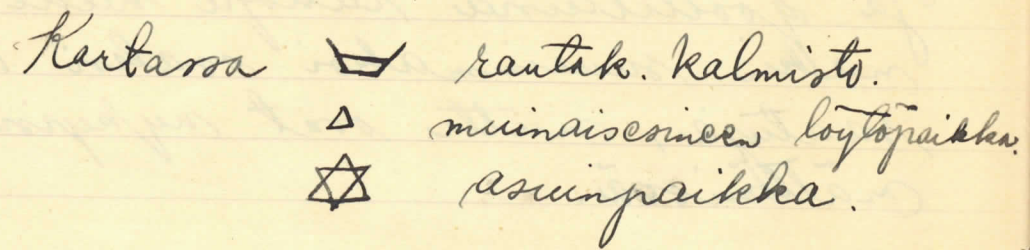 Kartassa rautak. kalmisto.
muinaisesineen löytöpaikka.
asuinpaikka.